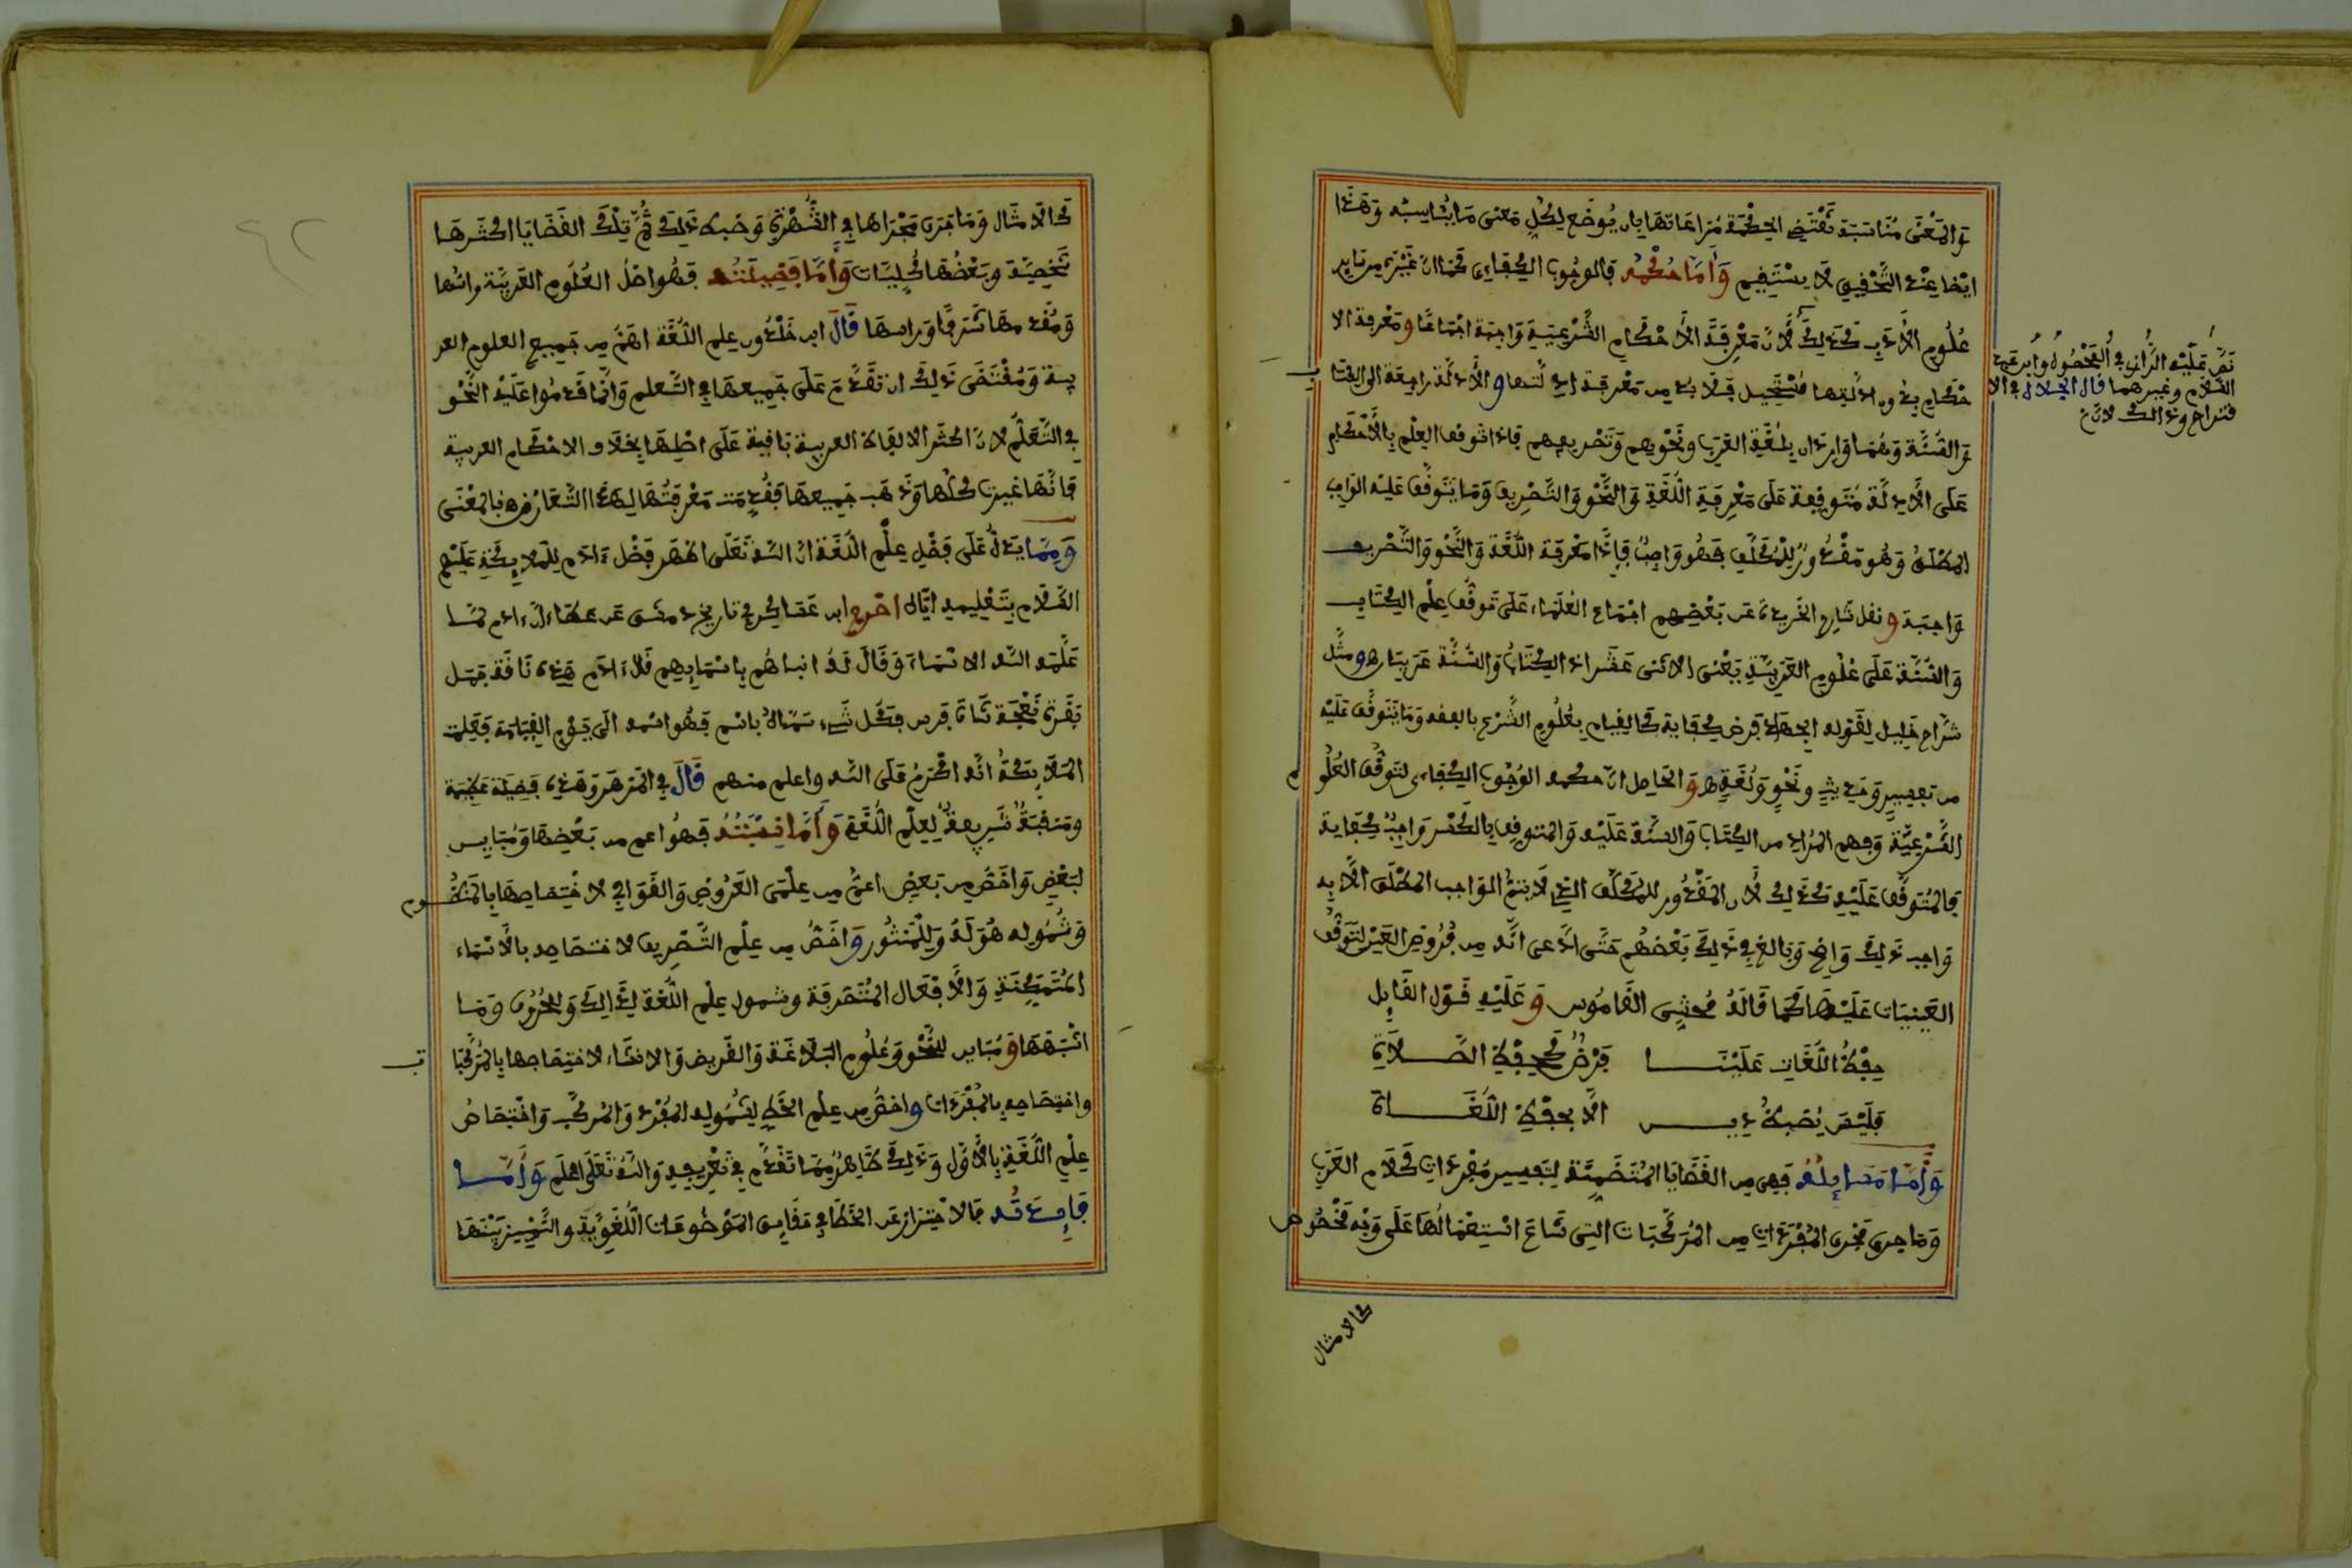 والمعنى مناسبة تقتضي الحكمة مراعاتها بان يوضع لكل معنى ما يناسبه وهذا
ايضا عند التحقيق لا يستقيم وأما حكمه فالوجوب الكفاءي كما ان غيره من ساير
علوم الأدب كذلك لأن معرفة الأحكام الشرعية واجبة اجماعا ومعرفة الا
حكام بدون ادلتها مستحيل فلا بد من معرفة ادلتها والأدلة راجعة الى الكتاب
والسنة وهما واردان بلغة العرب ونحوهم وتصريفهم فاذا توقف العلم بالأحكام
على الأدلة متوقفة على معرفة اللغة والنحو والتصريف وما يتوقف عليه الواجب
المطلق وهو مقدور للمكلف فهو واجب فإذا معرفة اللغة والنحو والتصريف
واجبة ونقل شارح الخريدة عن بعضهم اجماع العلماء على توقف علم الكتاب
والسنة على علوم العربية يعني الاثنى عشر اذ الكتاب والسنة عربيان ومثل
شراح خليل لقوله الجهاد فرض كفاية كالقيام بعلوم الشرع بالفقه وما يتوقف عليه
من تفسير وحديث ونحو ولغة والحاصل ان حكمه الوجوب الكفاءي لتوقف العلوم
الشرعية وفهم المراد من الكتاب والسنة عليه والمتوقف بالكسر واجب كفاية
فالمتوقف عليه كذلك لأن المقدور للمكلف الذي لا يتم الواجب المطلق الا به
واجب وذلك واضح وبالغ في ذلك بعضهم حتى ادعى انه من فروض العين لتوقف
العينيات عليها كما قاله محشى القاموس وعليه قول القايل
حفظ اللغات علينا فرض كحفظ الصلاة
فليس يضبط دين الا بحفظ اللغاة
وأما مسايله فهي من القضايا المتضمنة لتفسير مفردات كلام العرب
وما جرى مجرى المفردات من المركبات التي شاع استعمالها على وجه مخصوص
كالامثال
نص عليه الرازي في المحصول وابن عبد
السلام وغيرهما قال الجلال في الا
قتراح وذالك لان
كالامثال وما جرى مجراها في الشهرة وضبط ذلك ثم تلك القضايا اكثرها
شخصية وبعضها كليات وأما فضيلته فهو اصل العلوم العربية واسها
ومقدمها شرفا وراسها قال ابن خلدون علم اللغة اهم من جميع العلوم العر
بية ومقتضى ذلك ان تقدم على جميعها في التعلم وانما قدموا عليه النحو
في التعلم لان اكثر الالفاظ العربية باقية على اصلها بخلاف الاحكام العربية
فانها غيرت كلها وذهب جميعها فقدمت معرفتها لهذا التعارض بالمعنى
ومما يدل على فضل علم اللغة ان الله تعلى اظهر فضل ءادم للملايكة عليهم
السلام بتعليمه اياه اخرج ابن عساكر في تاريخ دمشق عن عطاء ان ءادم لما
علمه الله الاسماء وقال له انباهم باسمايهم قال ءادم هذه ناقة جمل
بقرة نعجة شاة فرس فكل شيء سماه باسم فهو اسمه الى يوم القيامة فعلمت
الملايكة انه اكرم على الله واعلم منهم قال في المزهر وهذه فضيلة عظيمة
ومنقبة شريفة لعلم اللغة وأما نسبته فهو اعم من بعضها ومباين
لبعض واخص من بعض اعم من علمى العروض والقوافي لاختصاصها بالمنظوم
وشموله هو له وللمنثور واخص من علم التصريف لاختصاصه بالأسماء
المتمكنة والأفعال المتصرفة وشمول علم اللغة لذالك وللحروف وما
اشبهها ومباين للنحو وعلوم البلاغة والقريض والانشاء لاختصاصها بالمركبات
واختصاصه بالمفردات واخص من علم الخط لشموله المفرد والمركب واختصاص
علم اللغة بالأول وذلك ظاهر مما تقدم في تعريفه والله تعلى اعلم وأما
فايدته فالاحتراز عن الخطا في مقاييس الموضوعات اللغوية والتمييز بينها